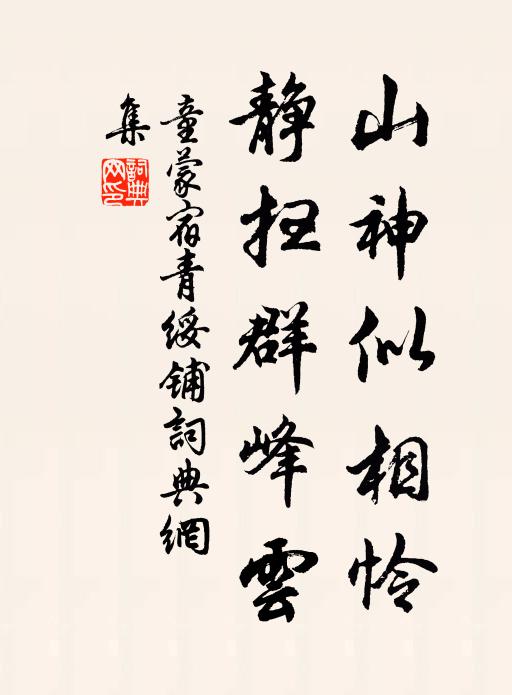 山神似相怜
静扫群峰雲
童蒙宿青綏铺詞典網
集
詞典
网印